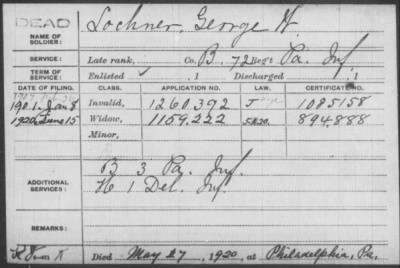 DEAD
NAME OF SOLDIER: Lochner, George W.
SERVICE: Late rank, Co. B, 72 Reg't Pa. Inf.
TERM OF SERVICE: Enlisted , 1 Discharged , 1
DATE OF FILING. CLASS. APPLICATION NO. LAW. CERTIFICATE NO.
1901. Jan 8 Invalid, 1260392 J 1085158
1920, June 15 Widow, 1159.222 894,888
Minor,
ADDITIONAL SERVICES: B 3 Pa. Inf.
H 1 Del. Inf.
REMARKS:
Died May 27, 1920, at Philadelphia, Pa.